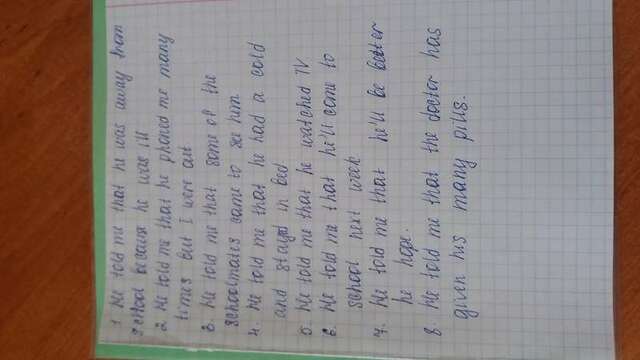 1 He told me that he was away from
school because he was ill
2. He told me that he phoned me many
times but I were out
3. He told me that some of the
schoolmates came to see him
4. He told me that he had a cold
and stayed in bed
5. He told me that he watched TV
6. He told me that he'll come to
school next week
7. He told me that he'll be better
he hope.
8. He told me that the doctor has
given his many pills.